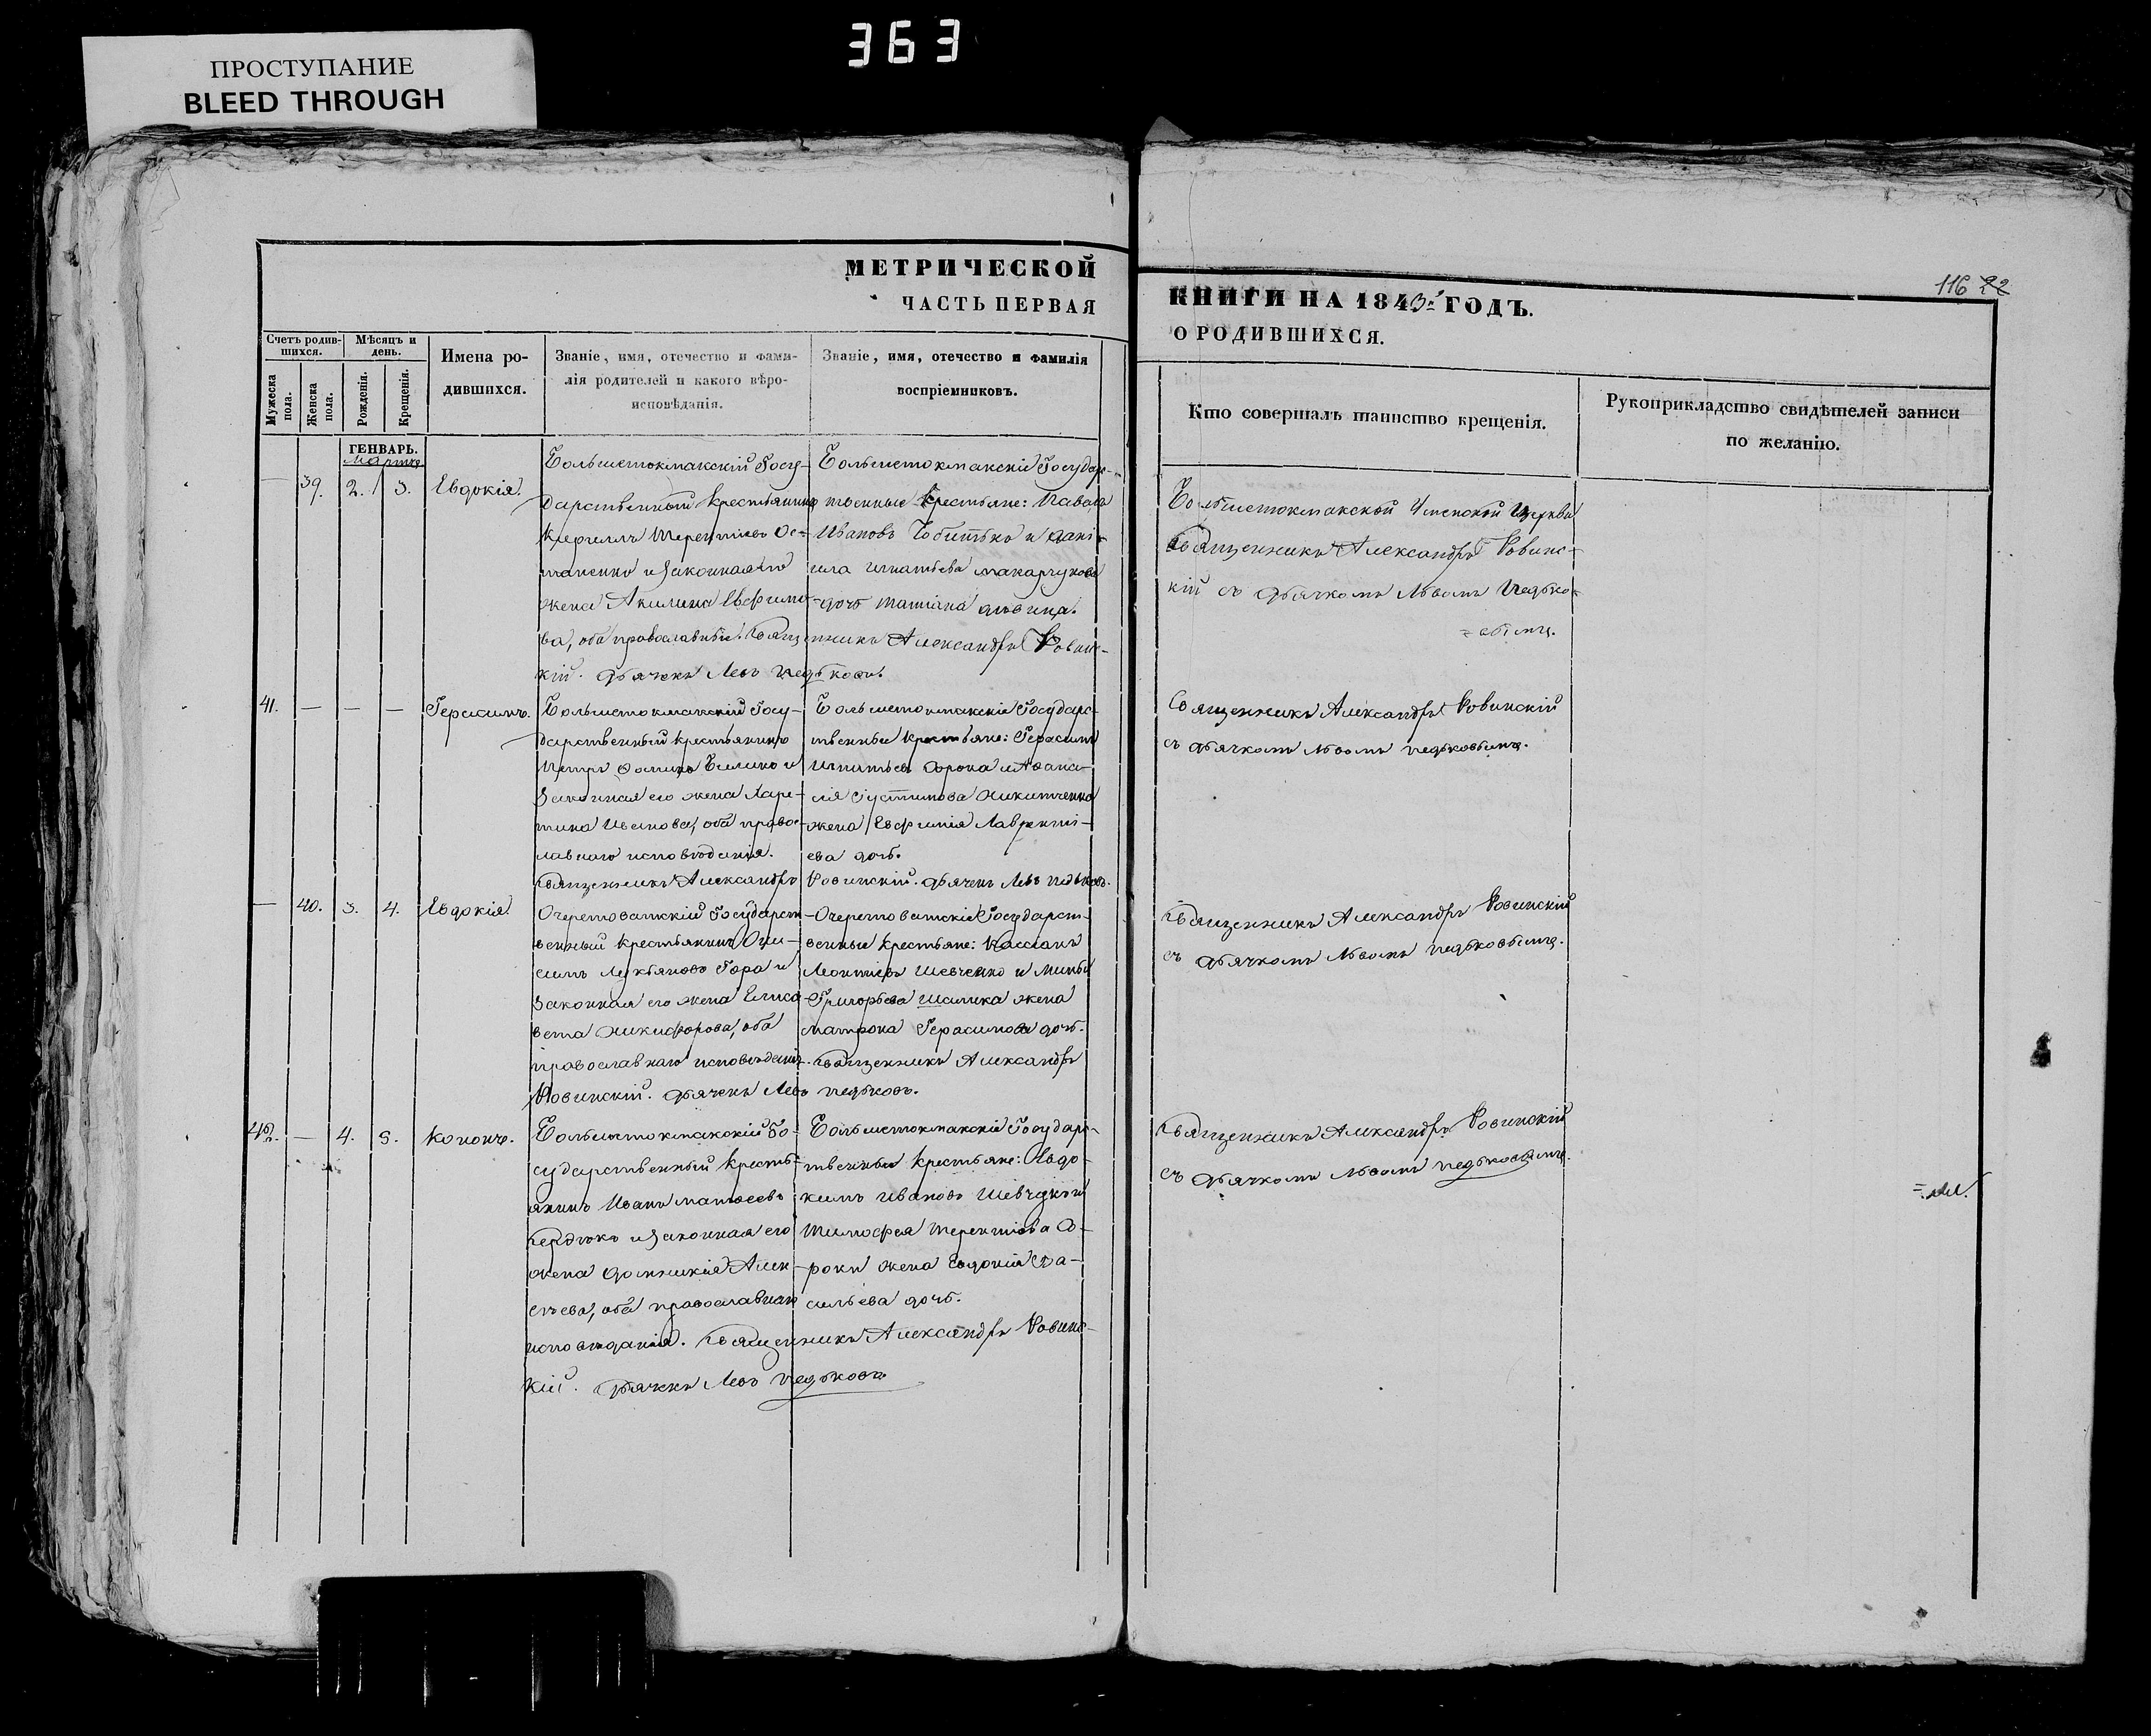 363
ПРОСТУПАНИЕ
BLEED THROUGH
МЕТРИЧЕСКОЙ
ЧАСТЬ ПЕРВАЯ
КНИГИ НА 1843й ГОДЪ.
О РОДИВШИХСЯ.
116 22
Счетъ родив-
шихся.
Мѣсяцъ и
день.
Мужеска
пола.
Женска
пола.
Рожденія.
Крещенія.
Имена ро-
дившихся.
Званіе, имя, отечество и фами-
лія родителей и какого вѣро-
исповѣданія.
Званіе, имя, отечество и фамилія
воспріемниковъ.
Кто совершалъ таинство крещенія.
Рукоприкладство свидѣтелей записи
по желанію.
ГЕНВАРЬ.
Марта
— 39. 2. 3. Евдокія.
Большетокмакскій Госу-
дарственный крестьянинъ
Кириллъ Терентіевъ Ос-
таненко и законная его
жена Акилина Евфимо-
ва, оба православные. Священникъ Александръ Ровинс-
кій. Дьячекъ Левъ Педьковъ.
Большетокмакскіе Государс-
твенные крестьяне: Павелъ
Ивановъ Чобитько и Дані-
ила Игнатьева Макарчукова
дочь Татіана дѣвица.
Большетокмакской Успенской Церкви
Священникъ Александръ Ровинс-
кій съ дьячкомъ Львомъ Педько-
вымъ.
41. — — — Герасимъ.
Большетокмакскій Госу-
дарственный крестьянинъ
Петръ Фоминъ Билико и
законная его жена Харе-
тина Иванова, оба право-
славнаго исповѣданія.
Священникъ Александръ Ровинскій. Дьячекъ Левъ Педьковъ.
Большетокмакскіе Государс-
твенные крестьяне: Герасимъ
Игнатьевъ Сорока и Афана-
сія Густинова Никитченка
жена Евфимія Лавренті-
ева дочь.
Священникъ Александръ Ровинскій
съ дьячкомъ Львомъ Педьковымъ.
— 40. 3. 4. Евдокія.
Очеретоватскій Государст-
венный крестьянинъ Они-
симъ Лукьяновъ Гора и
законная его жена Елиса-
вета Никифорова, оба
православнаго исповѣданія. Священникъ Александръ
Ровинскій. Дьячекъ Левъ Педьковъ.
Очеретоватскіе Государст-
венные крестьяне: Кассіанъ
Леонтіевъ Шевченко и Мины
Григорьева Шалика жена
Матрона Герасимова дочь.
Священникъ Александръ Ровинскій
съ дьячкомъ Львомъ Педьковымъ.
42. — 4. 5. Кононъ.
Большетокмакскій Го-
сударственный кресть-
янинъ Иванъ Матфеевъ
Сердюкъ и законная его
жена Домникія Алек-
сѣева, оба православнаго
исповѣданія. Священникъ Александръ Ровинс-
кій. Дьячекъ Левъ Педьковъ
Большетокмакскіе Государс-
твенные крестьяне: Евдо-
кимъ Ивановъ Шевчукъ и
Тимофея Терентіева Со-
роки жена Евдокія Ва-
сильева дочь.
Священникъ Александръ Ровинскій
съ дьячкомъ Львомъ Педьковымъ.